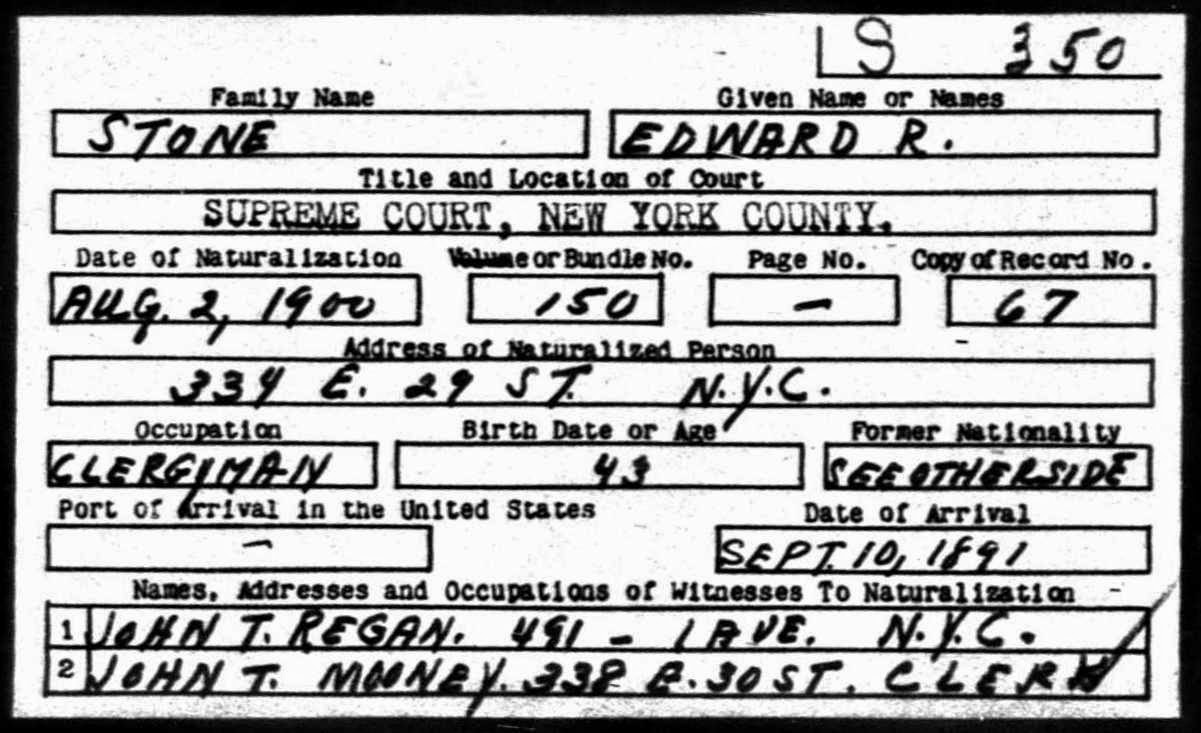 S 350
Family Name Given Name or Names
STONE EDWARD R.
Title and Location of Court
SUPREME COURT, NEW YORK COUNTY.
Date of Naturalization Volume or Bundle No. Page No. Copy of Record No.
AUG. 2, 1900 150 - 67
Address of Naturalized Person
334 E. 29 ST. N.Y.C.
Occupation Birth Date or Age Former Nationality
CLERGYMAN 43 SEE OTHER SIDE
Port of Arrival in the United States Date of Arrival
- SEPT. 10, 1891
Names, Addresses and Occupations of Witnesses To Naturalization
1 JOHN T. REGAN. 491 - 1 AVE. N.Y.C.
2 JOHN T. MOONEY. 338 E. 30 ST. CLERK